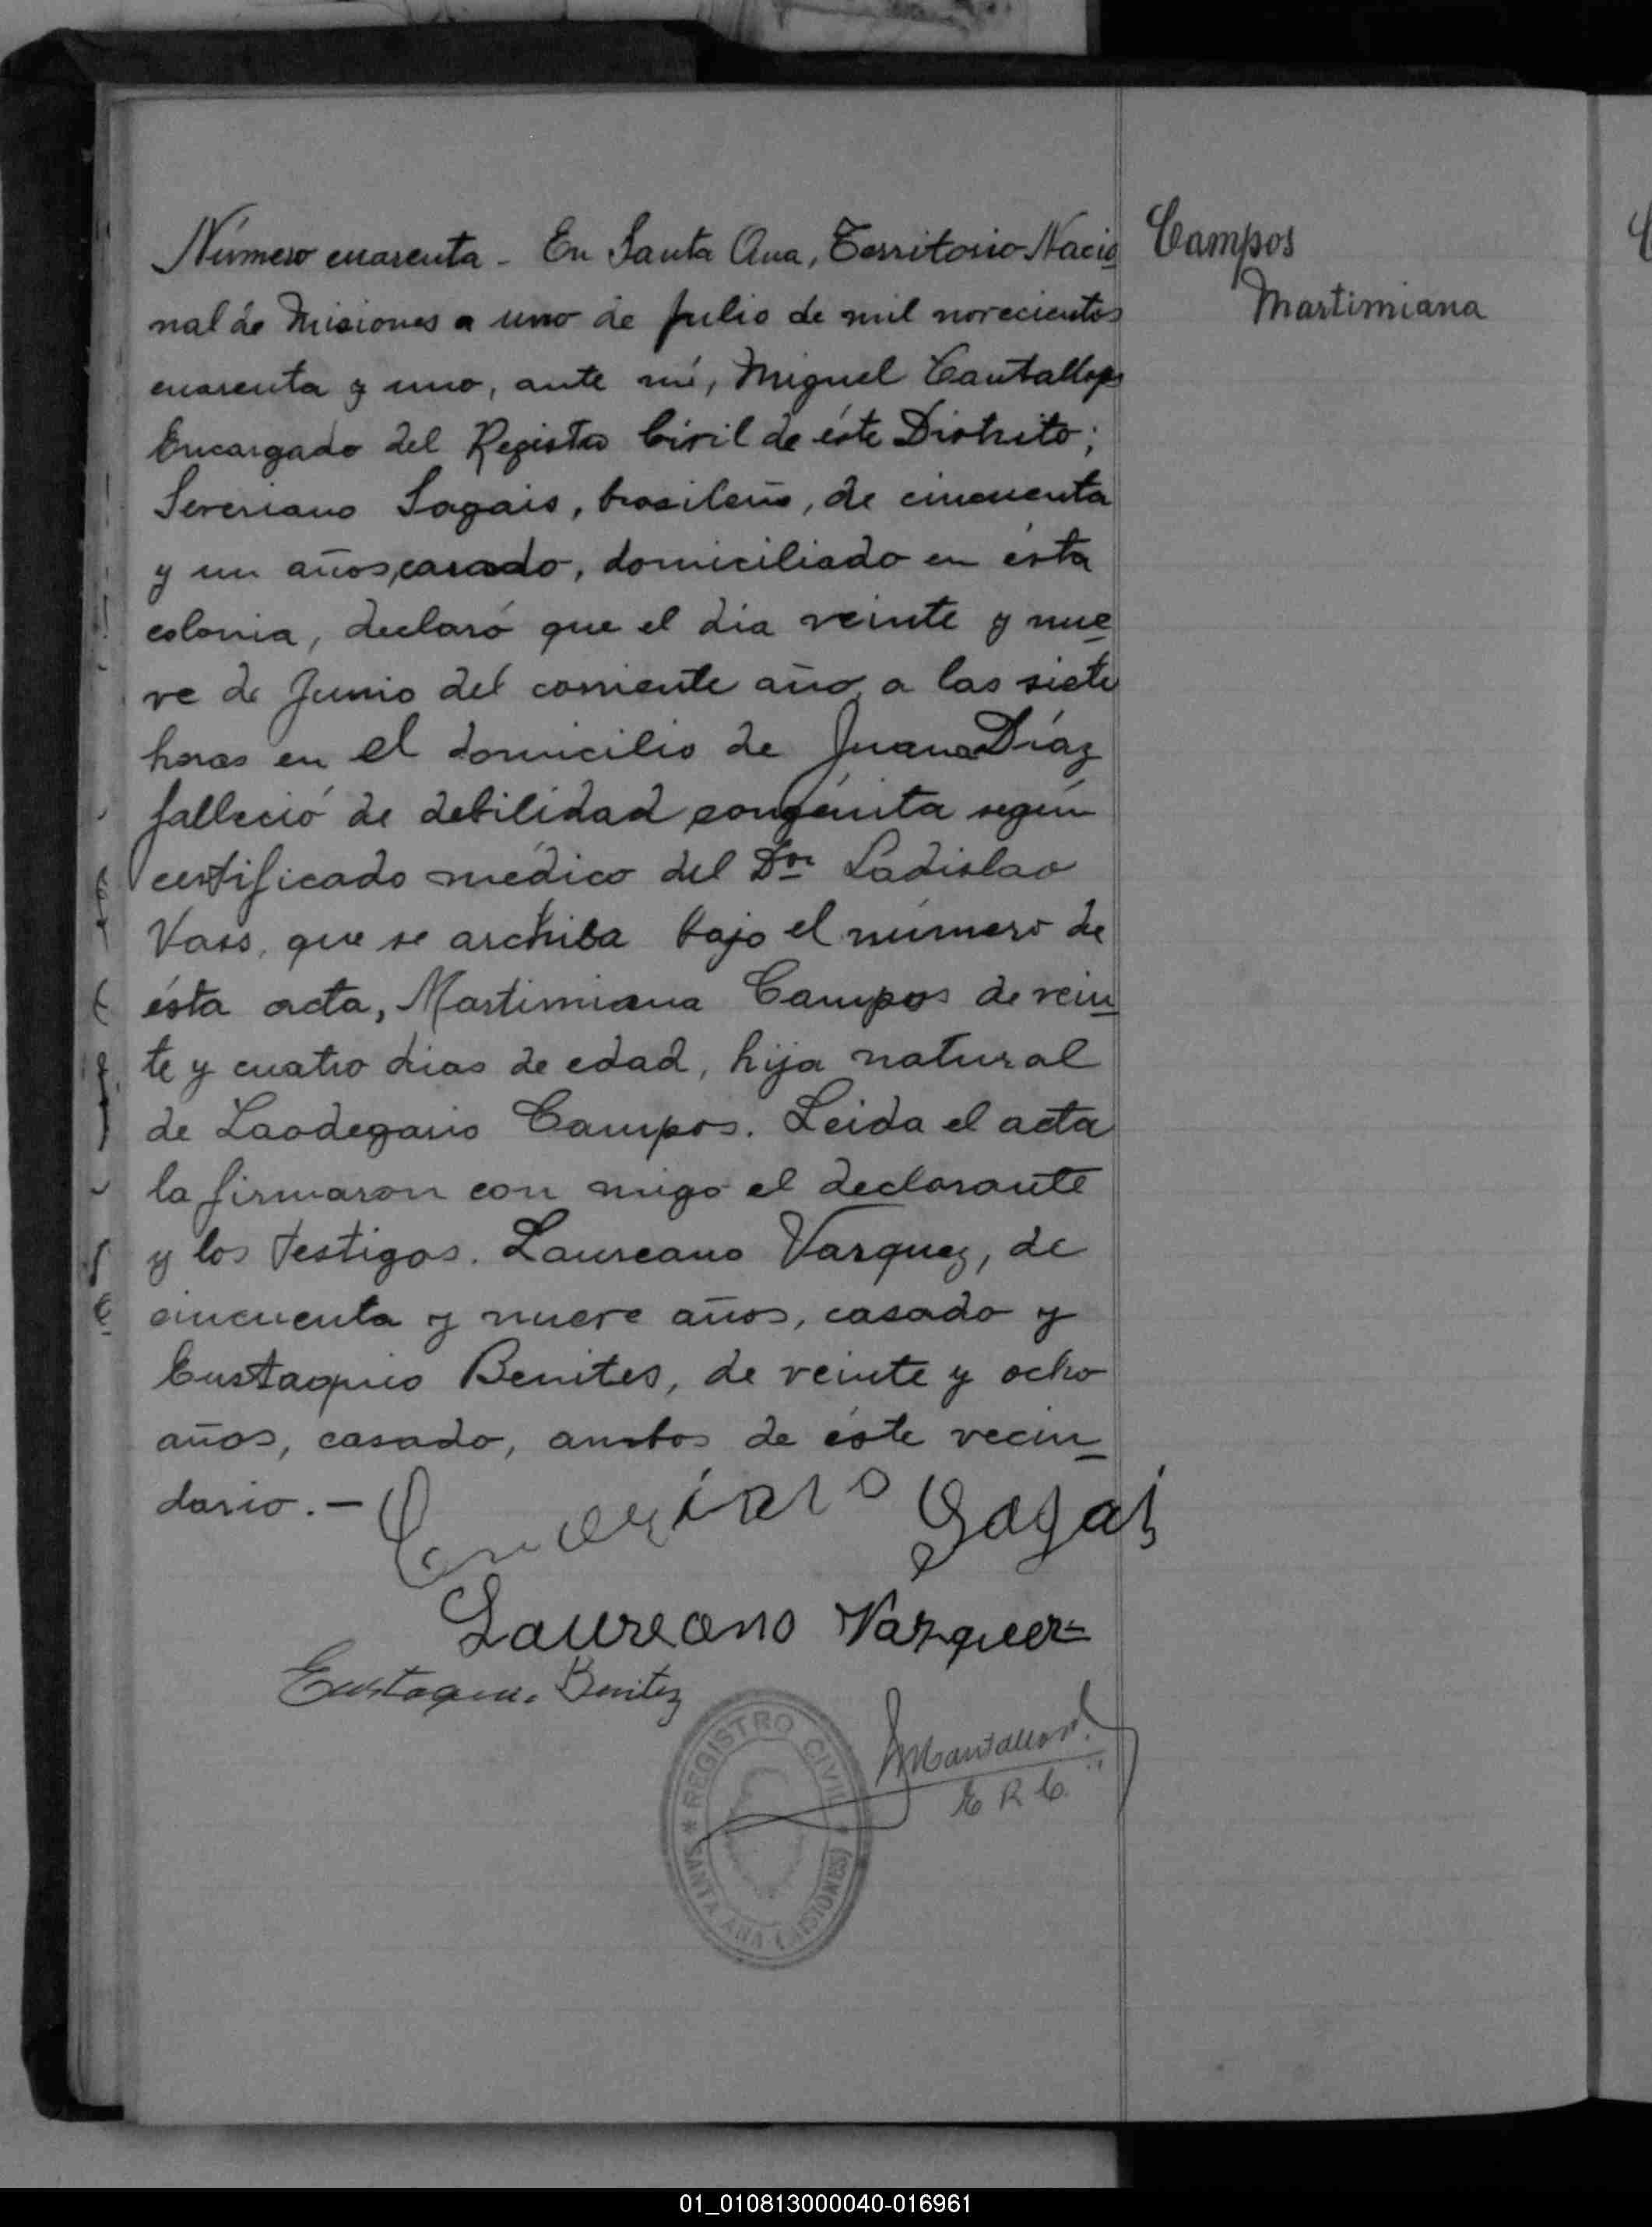 Número cuarenta - En Santa Ana, Territorio Nacio
nal de Misiones a uno de Julio de mil novecientos
cuarenta y uno, ante mí, Miguel Cantallops
Encargado del Registro Civil de éste Distrito;
Severiano Sagais, brasileño, de cincuenta
y un años, casado, domiciliado en ésta
colonia, declaró que el dia veinte y nue
ve de Junio del corriente año, a las siete
horas en el domicilio de Juana Díaz
falleció de debilidad congénita según
certificado médico del Dor Ladislao
Vass, que se archiba bajo el número de
ésta acta, Martimiana Campos de vein
te y cuatro dias de edad, hija natural
de Laodegario Campos. Leida el acta
la firmaron con migo el declarante
y los testigos. Laureano Varquez, de
cincuenta y nueve años, casado y
Eustaquio Benites, de veinte y ocho
años, casado, ambos de éste vecin
dario. -
Laureano Varquez
Eustaquio Benitez
MCantallops
E R C.
REGISTRO CIVIL
* SANTA ANA (MISIONES) *
Campos
Martimiana
01_010813000040-016961